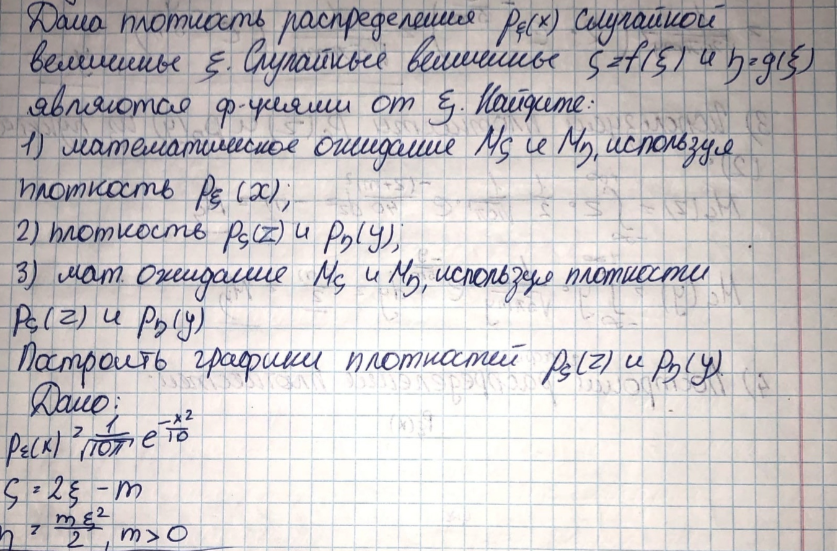 Дана плотность распределения p_ξ(x) случайной
величины ξ. Случайные величины ζ=f(ξ) и η=g(ξ)
являются ф-циями от ξ. Найдите:
1) математическое ожидание Mζ и Mη, используя
плотность p_ξ(x);
2) плотность p_ζ(z) и p_η(y);
3) мат. ожидание Mζ и Mη, используя плотности
p_ζ(z) и p_η(y)
Построить графики плотностей p_ζ(z) и p_η(y)
Дано:
p_ξ(x) = 1/√(10π) e^(-x²/10)
ζ = 2ξ - m
η = mξ²/2, m>0